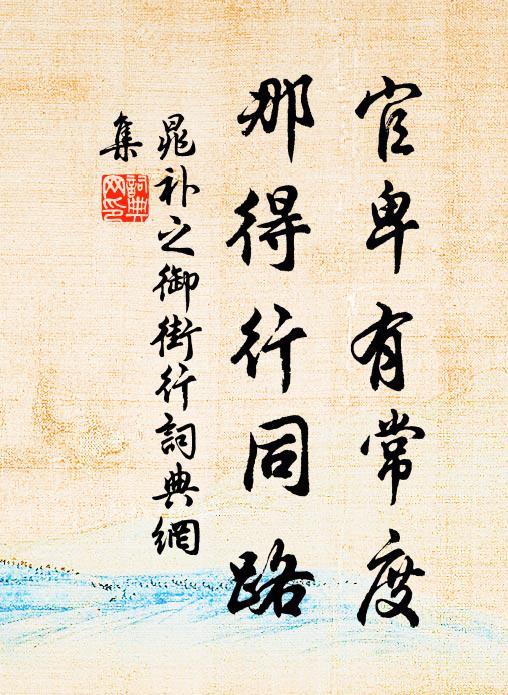 官卑有常度
那得行同路
晁补之御街行詞典網
集
詞典
网印